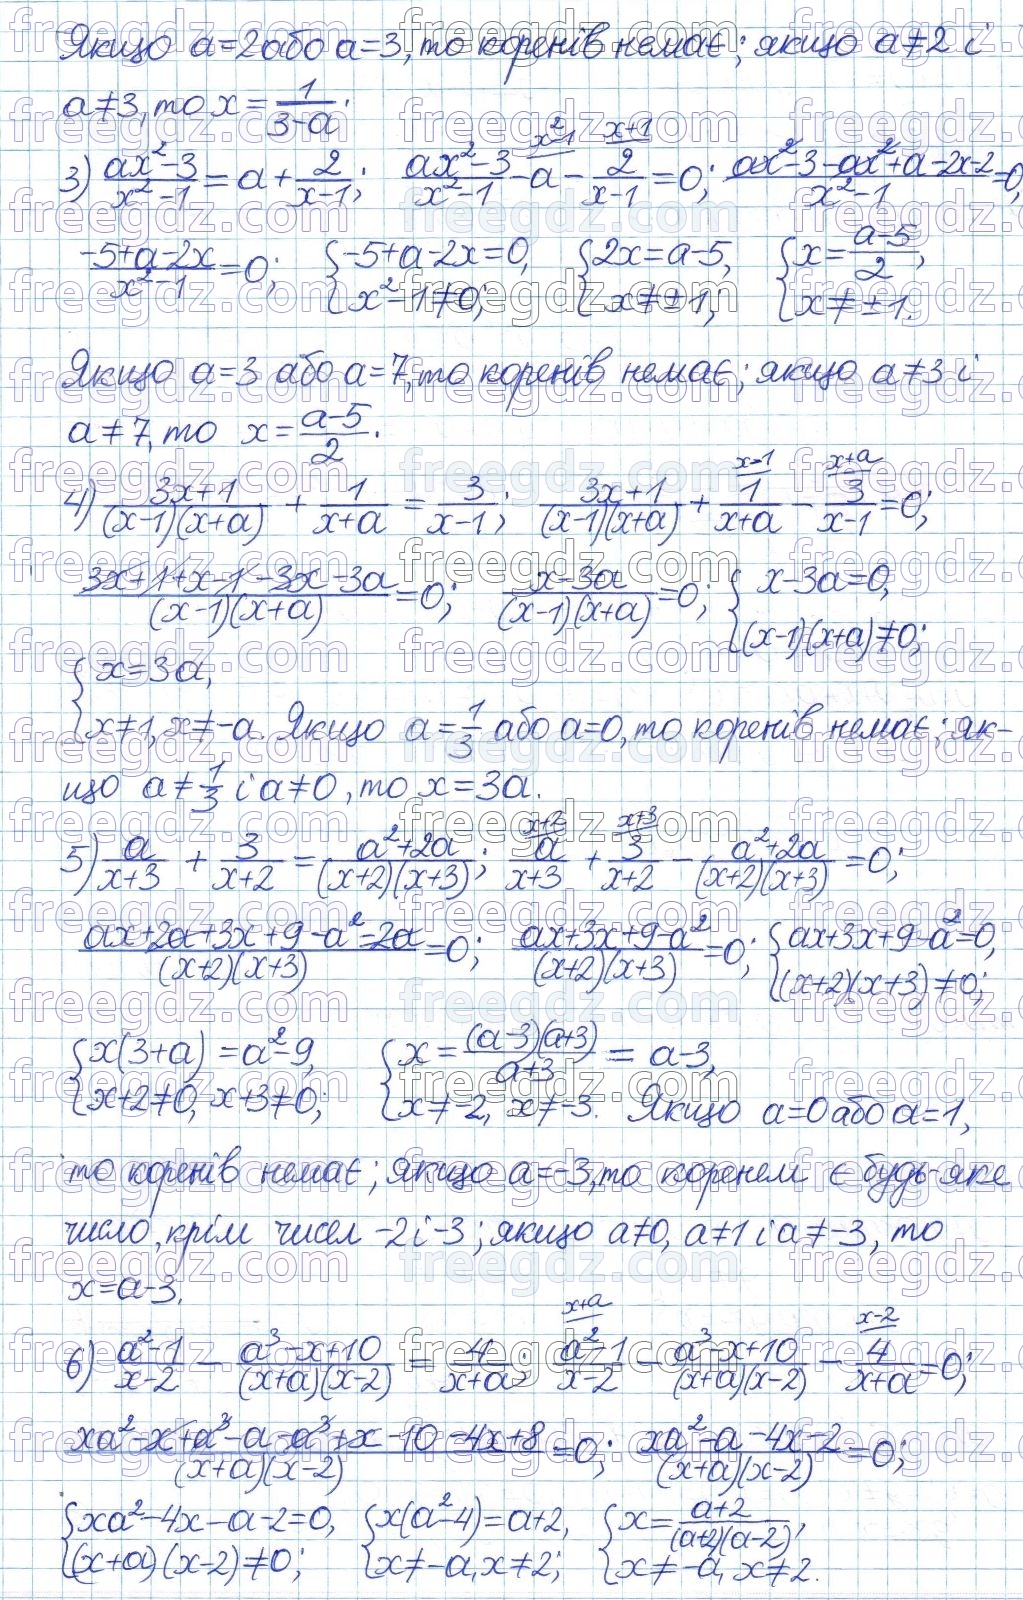 Якщо a=2 або a=3, то коренів немає; якщо a≠2 і
a≠3, то x = 1/(3-a).
3) (ax²-3)/(x²-1) = a + 2/(x-1); (ax²-3)/(x²-1) - a^(x²-1) - 2/(x-1)^(x+1) = 0; (ax²-3-ax²+a-2x-2)/(x²-1) = 0,
(-5+a-2x)/(x²-1) = 0; {-5+a-2x=0, x²-1≠0; {2x=a-5, x≠±1; {x=(a-5)/2, x≠±1.
Якщо a=3 або a=7, то коренів немає; якщо a≠3 і
a≠7, то x = (a-5)/2.
4) (3x+1)/((x-1)(x+a)) + 1/(x+a) = 3/(x-1); (3x+1)/((x-1)(x+a)) + 1/(x+a)^(x-1) - 3/(x-1)^(x+a) = 0;
(3x+1+x-1-3x-3a)/((x-1)(x+a)) = 0; (x-3a)/((x-1)(x+a)) = 0; {x-3a=0, (x-1)(x+a)≠0;
{x=3a,
x≠1, x≠-a. Якщо a=1/3 або a=0, то коренів немає; як-
що a≠1/3 і a≠0, то x=3a.
5) a/(x+3) + 3/(x+2) = (a²+2a)/((x+2)(x+3)); a/(x+3)^(x+2) + 3/(x+2)^(x+3) - (a²+2a)/((x+2)(x+3)) = 0;
(ax+2a+3x+9-a²-2a)/((x+2)(x+3)) = 0; (ax+3x+9-a²)/((x+2)(x+3)) = 0; {ax+3x+9-a²=0, (x+2)(x+3)≠0;
{x(3+a)=a²-9, x+2≠0, x+3≠0; {x=((a-3)(a+3))/(a+3) = a-3, x≠-2, x≠-3. Якщо a=0 або a=1,
то коренів немає; якщо a=-3, то коренем є будь-яке
число, крім чисел -2 і -3; якщо a≠0, a≠1 і a≠-3, то
x=a-3.
6) (a²-1)/(x-2) - (a³-x+10)/((x+a)(x-2)) = 4/(x+a); (a²-1)/(x-2)^(x+a) - (a³-x+10)/((x+a)(x-2)) - 4/(x+a)^(x-2) = 0;
(xa²-x+a³-a-a³+x-10-4x+8)/((x+a)(x-2)) = 0; (xa²-a-4x-2)/((x+a)(x-2)) = 0;
{xa²-4x-a-2=0, (x+a)(x-2)≠0; {x(a²-4)=a+2, x≠-a, x≠2; {x=(a+2)/((a+2)(a-2)), x≠-a, x≠2.
freegdz.com